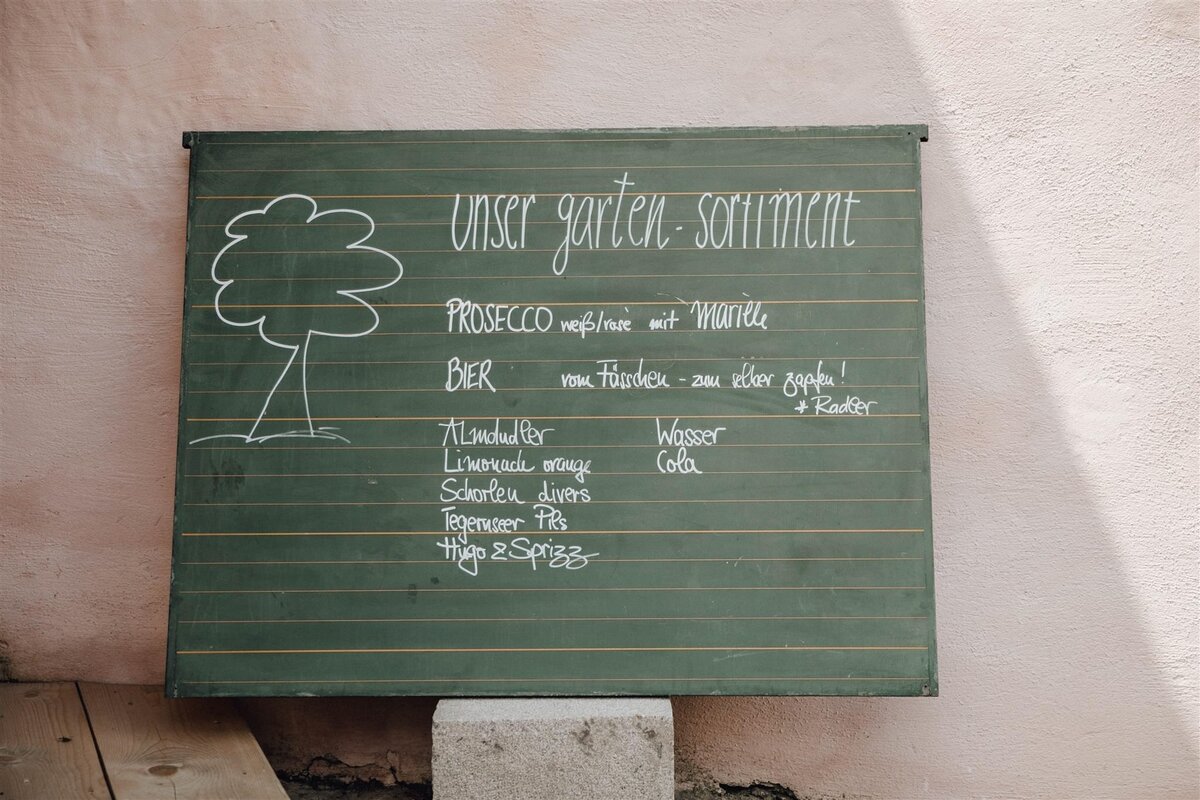 unser garten-sortiment
PROSECCO weiß/rosè mit Marille
BIER vom Fässchen - zum selber zapfen!
* Radler
Almdudler Wasser
Limonade orange Cola
Schorlen divers
Tegernseer Pils
Hugo & Sprizz